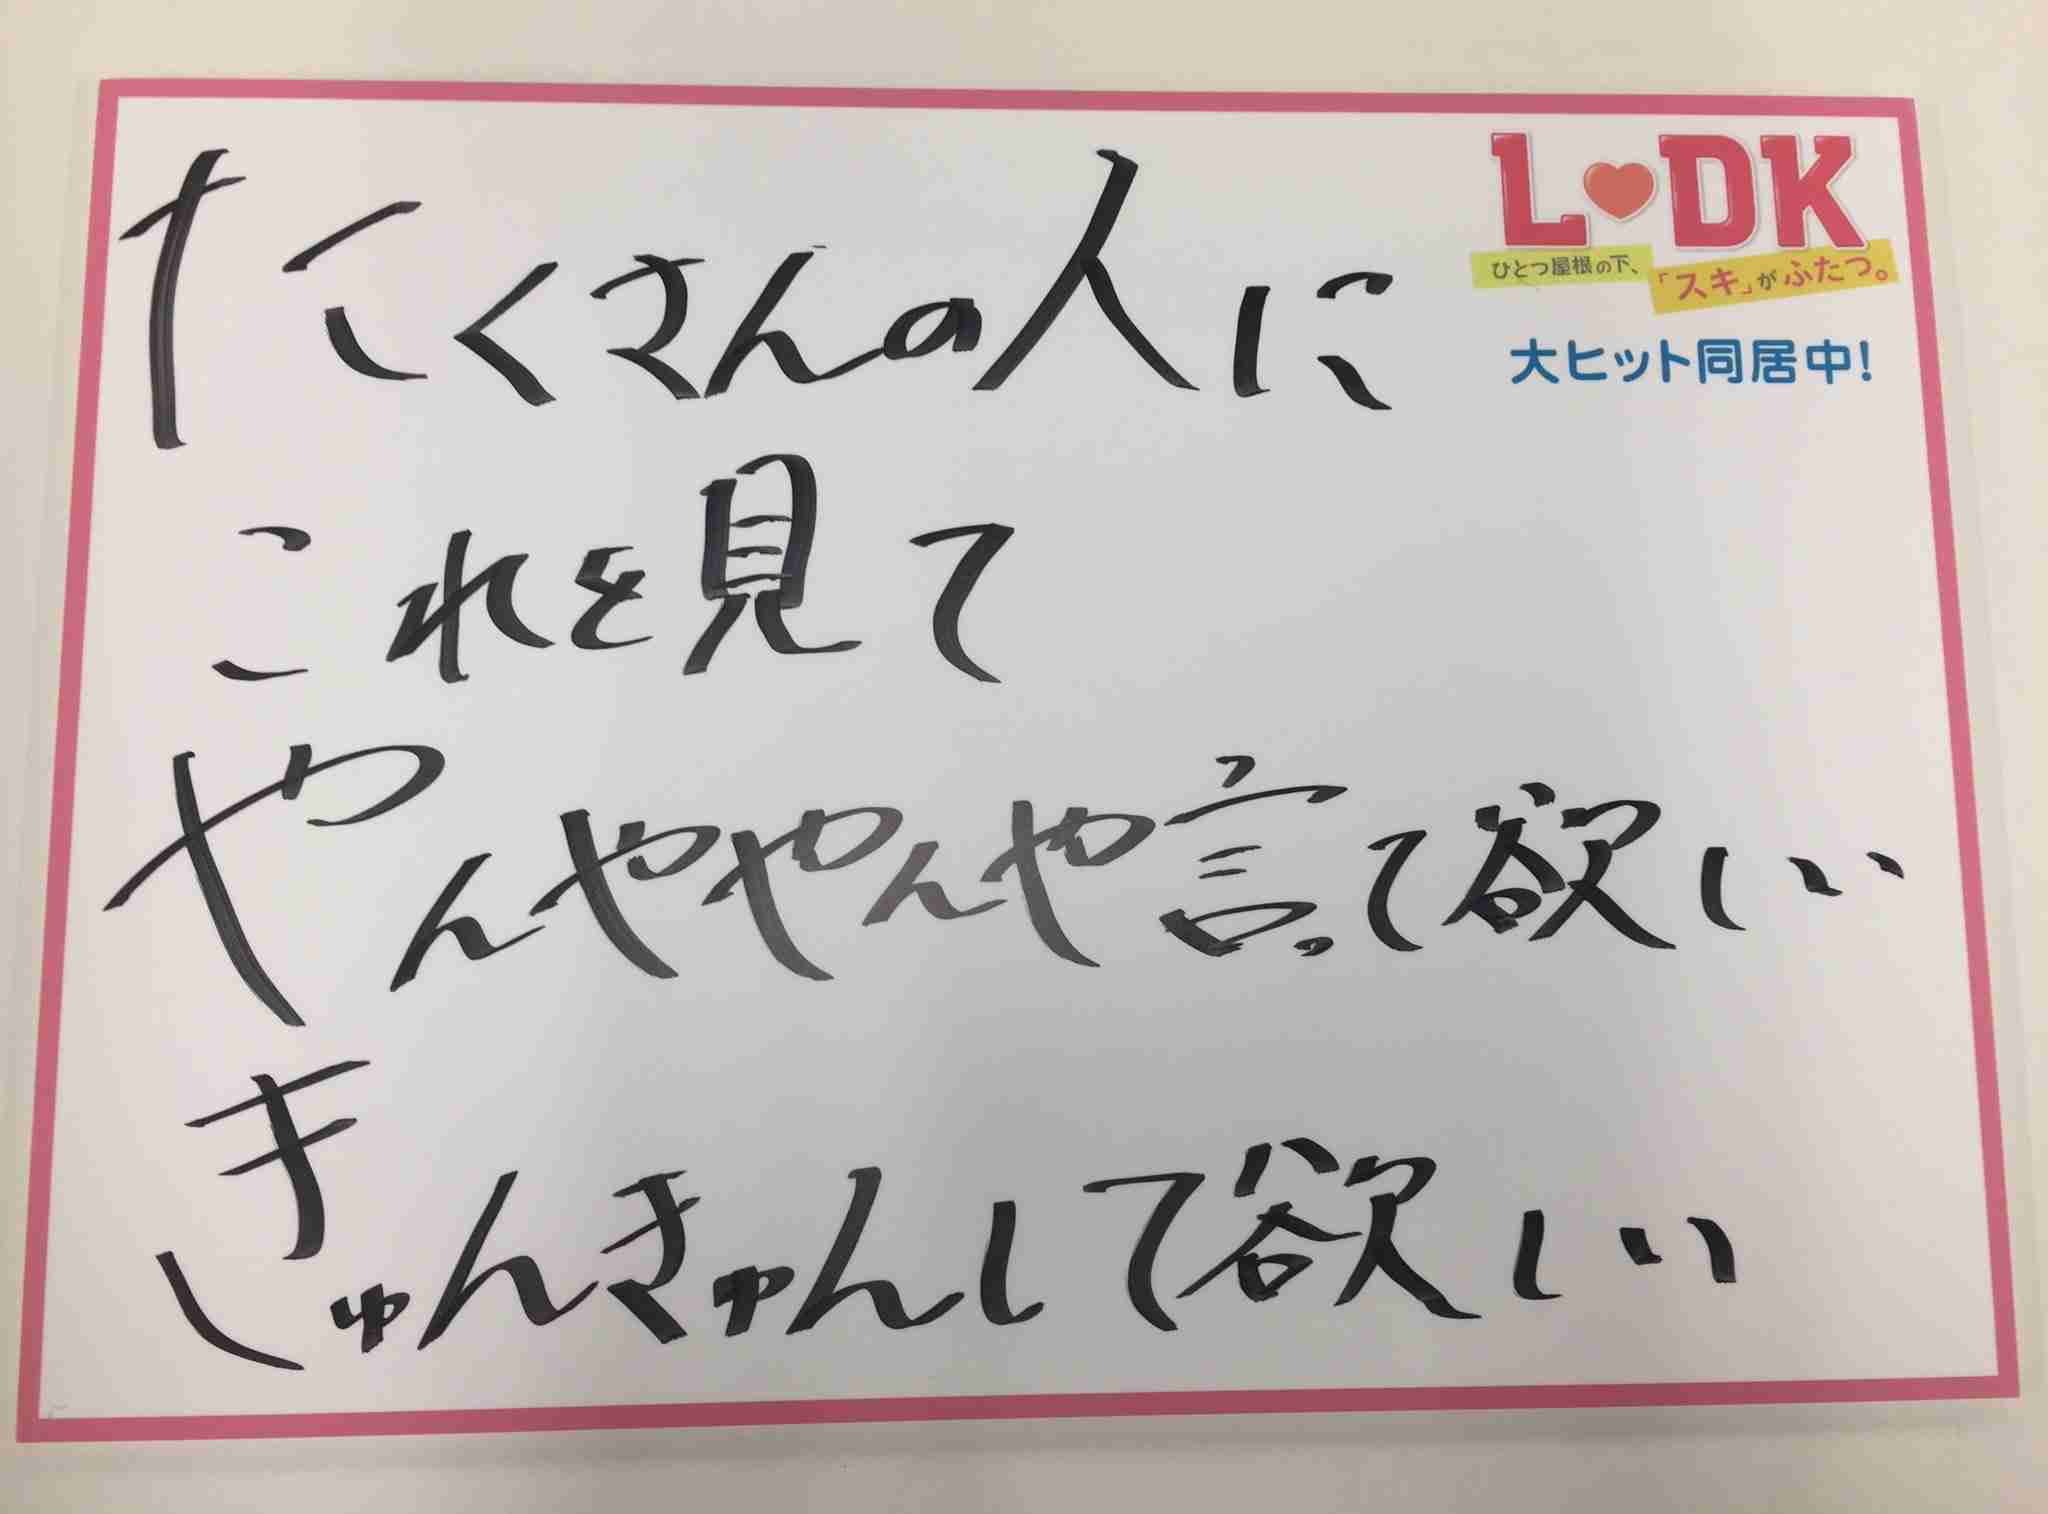 たくさんの人に
これを見て
やんややんや言って欲しい
きゅんきゅんして欲しい
L♥DK
ひとつ屋根の下、
「スキ」がふたつ。
大ヒット同居中!